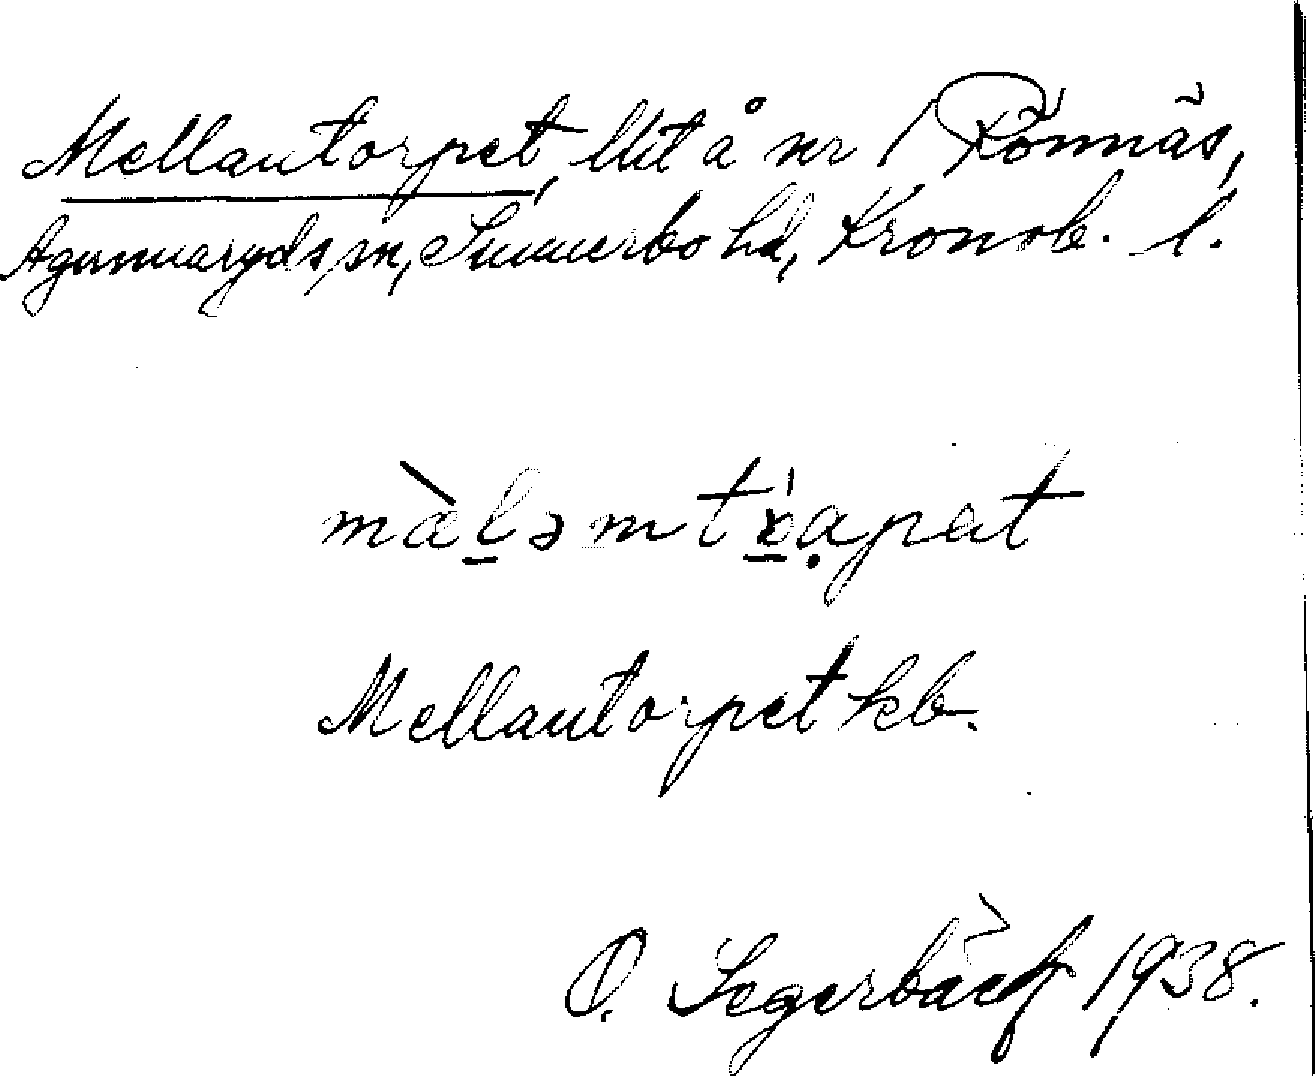 Mellantorpet, lht å nr 1 Rönnäs,
Agunnaryds sn, Sunnerbo hd, Kronob. l.
mæ̀l̠əmtàpat
Mellantorpet kb.
O. Segerbäck 1938.